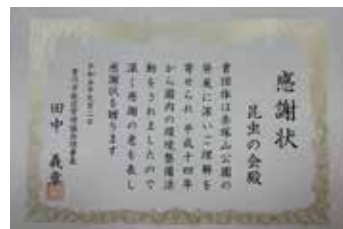 感謝状
昆虫の会殿
貴団体は赤塚山公園の
発展に深いご理解を
寄せられ 平成十四年
から園内の環境整備活
動をされましたので
深く感謝の意を表し
感謝状を贈ります
田中 義章